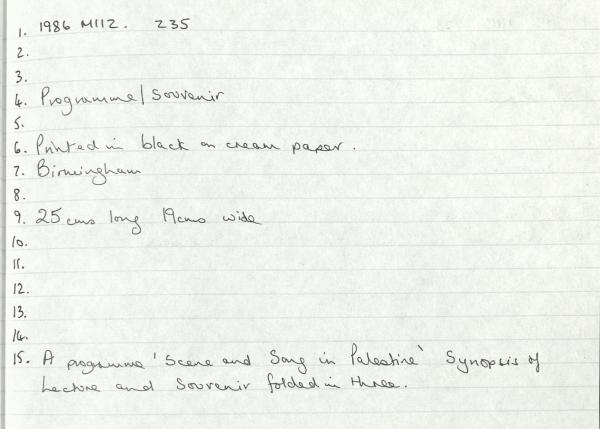 1. 1986 M112. 235
2.
3.
4. Programme/Souvenir
5.
6. Printed in black on cream paper.
7. Birmingham
8.
9. 25cms long 19cms wide
10.
11.
12.
13.
14.
15. A programme 'Scene and Song in Palestine' Synopsis of
Lecture and Souvenir folded in three.